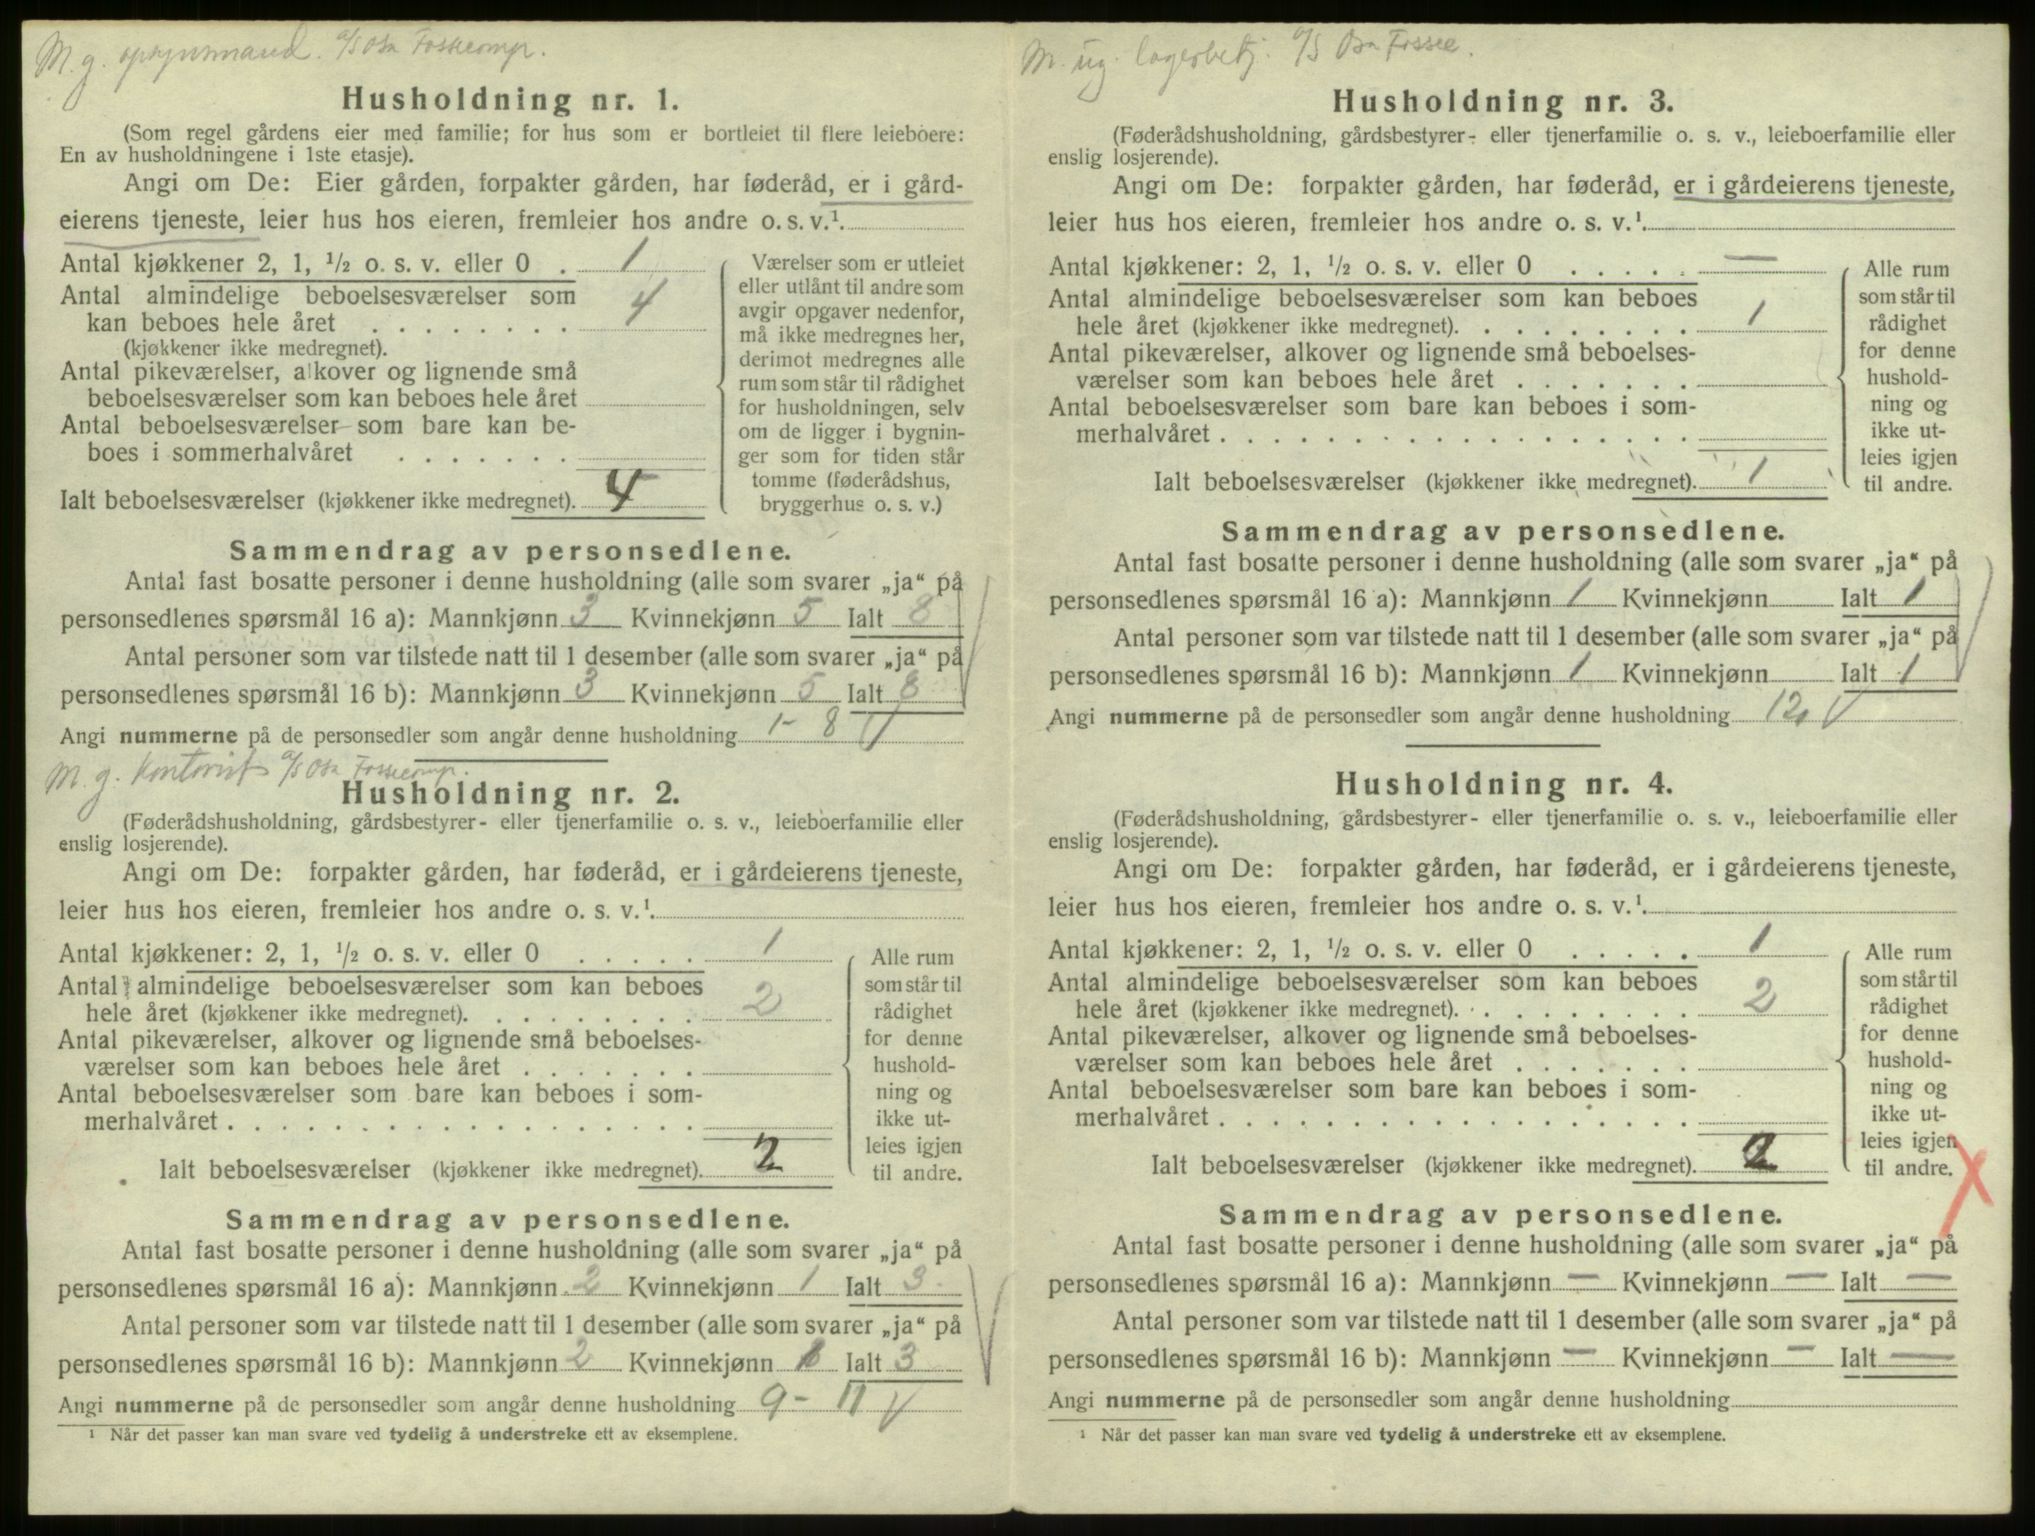 M. g. opsynsmand. A/S Osa Fossecomp.
Husholdning nr. 1.
(Som regel gårdens eier med familie; for hus som er bortleiet til flere leieboere:
En av husholdningene i 1ste etasje).
Angi om De: Eier gården, forpakter gården, har føderåd, er i gård-
eierens tjeneste, leier hus hos eieren, fremleier hos andre o. s. v.¹.
Antal kjøkkener 2, 1, ½ o. s. v. eller 0 . 1
Antal almindelige beboelsesværelser som
kan beboes hele året . . . . . . . . 4
(kjøkkener ikke medregnet).
Antal pikeværelser, alkover og lignende små
beboelsesværelser som kan beboes hele året
Antal beboelsesværelser som bare kan be-
boes i sommerhalvåret . . . . . . .
Ialt beboelsesværelser (kjøkkener ikke medregnet). 4
Værelser som er utleiet
eller utlånt til andre som
avgir opgaver nedenfor,
må ikke medregnes her,
derimot medregnes alle
rum som står til rådighet
for husholdningen, selv
om de ligger i bygnin-
ger som for tiden står
tomme (føderådshus,
bryggerhus o. s. v.)
Sammendrag av personsedlene.
Antal fast bosatte personer i denne husholdning (alle som svarer „ja“ på
personsedlenes spørsmål 16 a): Mannkjønn 3 Kvinnekjønn 5 Ialt 8
Antal personer som var tilstede natt til 1 desember (alle som svarer „ja“ på
personsedlenes spørsmål 16 b): Mannkjønn 3 Kvinnekjønn 5 Ialt 8
Angi nummerne på de personsedler som angår denne husholdning 1- 8
M. g. Kontorist A/S Osa Fossecomp.
Husholdning nr. 2.
(Føderådshusholdning, gårdsbestyrer- eller tjenerfamilie o. s. v., leieboerfamilie eller
enslig losjerende).
Angi om De: forpakter gården, har føderåd, er i gårdeierens tjeneste,
leier hus hos eieren, fremleier hos andre o. s. v.¹.
Antal kjøkkener: 2, 1, ½ o. s. v. eller 0 . . . . . 1
Antal almindelige beboelsesværelser som kan beboes
hele året (kjøkkener ikke medregnet). . . . . . . . . 2
Antal pikeværelser, alkover og lignende små beboelses-
værelser som kan beboes hele året . . . . . . .
Antal beboelsesværelser som bare kan beboes i som-
merhalvåret . . . . . . . . . . . . . . . . . .
Ialt beboelsesværelser (kjøkkener ikke medregnet). 2
Alle rum
som står til
rådighet
for denne
hushold-
ning og
ikke ut-
leies igjen
til andre.
Sammendrag av personsedlene.
Antal fast bosatte personer i denne husholdning (alle som svarer „ja“ på
personsedlenes spørsmål 16 a): Mannkjønn 2 Kvinnekjønn 1 Ialt 3
Antal personer som var tilstede natt til 1 desember (alle som svarer „ja“ på
personsedlenes spørsmål 16 b): Mannkjønn 2 Kvinnekjønn 1 Ialt 3
Angi nummerne på de personsedler som angår denne husholdning 9- 11
¹ Når det passer kan man svare ved tydelig å understreke ett av eksemplene.
M. ug. lagerbetj. A/S Osa Fossec.
Husholdning nr. 3.
(Føderådshusholdning, gårdsbestyrer- eller tjenerfamilie o. s. v., leieboerfamilie eller
enslig losjerende).
Angi om De: forpakter gården, har føderåd, er i gårdeierens tjeneste,
leier hus hos eieren, fremleier hos andre o. s. v.¹.
Antal kjøkkener: 2, 1, ½ o. s. v. eller 0 . . . . . —
Antal almindelige beboelsesværelser som kan beboes
hele året (kjøkkener ikke medregnet). . . . . . . . . 1
Antal pikeværelser, alkover og lignende små beboelses-
værelser som kan beboes hele året . . . . . . .
Antal beboelsesværelser som bare kan beboes i som-
merhalvåret . . . . . . . . . . . . . . . . . .
Ialt beboelsesværelser (kjøkkener ikke medregnet). 1
Alle rum
som står til
rådighet
for denne
hushold-
ning og
ikke ut-
leies igjen
til andre.
Sammendrag av personsedlene.
Antal fast bosatte personer i denne husholdning (alle som svarer „ja“ på
personsedlenes spørsmål 16 a): Mannkjønn 1 Kvinnekjønn Ialt 1
Antal personer som var tilstede natt til 1 desember (alle som svarer „ja“ på
personsedlenes spørsmål 16 b): Mannkjønn 1 Kvinnekjønn Ialt 1
Angi nummerne på de personsedler som angår denne husholdning 12
Husholdning nr. 4.
(Føderådshusholdning, gårdsbestyrer- eller tjenerfamilie o. s. v., leieboerfamilie eller
enslig losjerende).
Angi om De: forpakter gården, har føderåd, er i gårdeierens tjeneste,
leier hus hos eieren, fremleier hos andre o. s. v.¹.
Antal kjøkkener: 2, 1, ½ o. s. v. eller 0 . . . . . 1
Antal almindelige beboelsesværelser som kan beboes
hele året (kjøkkener ikke medregnet). . . . . . . . . 2
Antal pikeværelser, alkover og lignende små beboelses-
værelser som kan beboes hele året . . . . . . .
Antal beboelsesværelser som bare kan beboes i som-
merhalvåret . . . . . . . . . . . . . . . . . .
Ialt beboelsesværelser (kjøkkener ikke medregnet). 2
Alle rum
som står til
rådighet
for denne
hushold-
ning og
ikke ut-
leies igjen
til andre.
Sammendrag av personsedlene.
Antal fast bosatte personer i denne husholdning (alle som svarer „ja“ på
personsedlenes spørsmål 16 a): Mannkjønn — Kvinnekjønn — Ialt —
Antal personer som var tilstede natt til 1 desember (alle som svarer „ja“ på
personsedlenes spørsmål 16 b): Mannkjønn — Kvinnekjønn — Ialt —
Angi nummerne på de personsedler som angår denne husholdning
¹ Når det passer kan man svare ved tydelig å understreke ett av eksemplene.